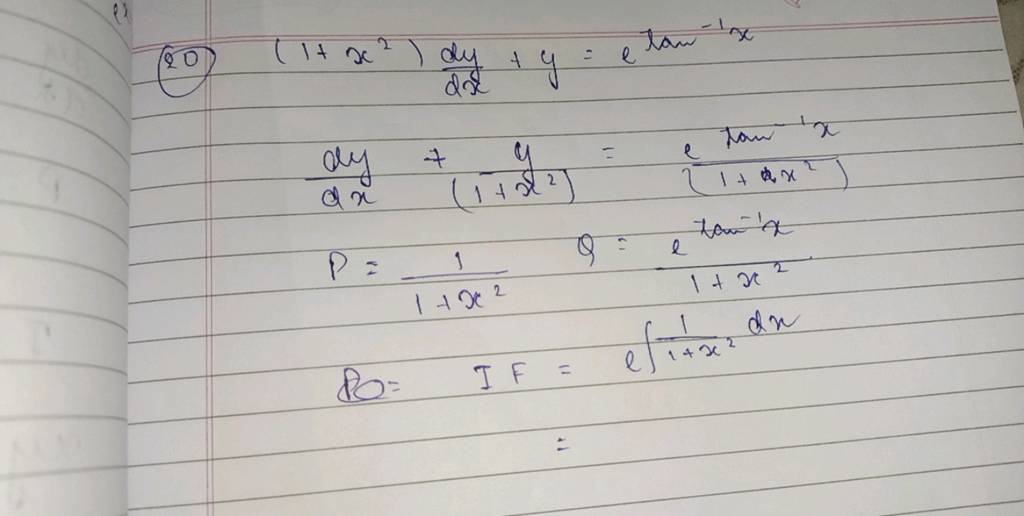 20 (1+x²) dy/dx + y = e^tan⁻¹x
dy/dx + y/(1+x²) = e^tan⁻¹x/(1+x²)
P = 1/1+x² Q = e^tan⁻¹x/1+x²
IF = e^∫1/1+x² dx
=